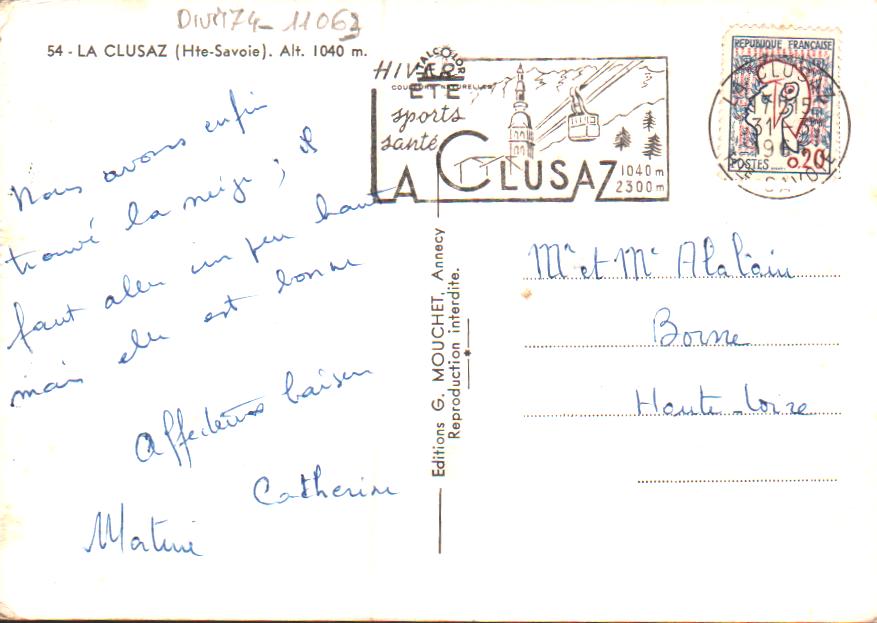 DIVM74-11062
54 - LA CLUSAZ (Hte-Savoie). Alt. 1040 m.
Nous avons enfin
trouvé la neige ; il
faut aller un peu haut
mais elle est bonne
Affectueux baisers
Catherine
Martine
Editions G. MOUCHET, Annecy
Reproduction interdite.
HIVER
ÉTÉ
COULEURS NATURELLES
sports
santé
LA CLUSAZ
1040 m
2300 m
REPUBLIQUE FRANÇAISE
POSTES 0.20
LA CLUSAZ
17 H 15
31 - 3
Mr et Me Alalain
Borne
Haute-Loire